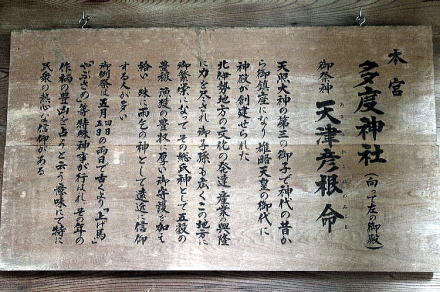 本宮
多度神社（向って左の御殿）
御祭神 天津彦根命
あまつひこねのみこと
天照大神の第三の御子で神代の昔か
ら御鎮座になり雄略天皇の御代に
神殿が創建せられた
北伊勢地方の文化の発達産業の興隆
に力を尽され御子孫も広くこの地方に
御繁栄になってその総氏神として五穀の
豊穣 漁獲の豊収に厚い御守護を加え
給い 殊に雨乞の神として遠近に信仰
する人が多い
御例祭は五月四日五日の両日で古くより「上げ馬」
「やぶさめ」等特殊神事が行はれ その年の
作柄の豊凶を占うと云う意味にて特に
民衆の熱心な信仰がある